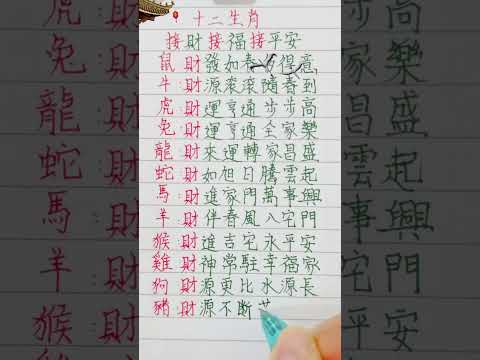 十二生肖
接財接福接平安
鼠:財發如春得意
牛:財源滾滾隨春到
虎:財運亨通步步高
兔:財運亨通全家樂
龍:財來運轉家昌盛
蛇:財如旭日騰雲起
馬:財進家門萬事興
羊:財伴春風入宅門
猴:財進吉宅永平安
雞:財神常駐幸福家
狗:財源更比水源長
豬:財源不斷